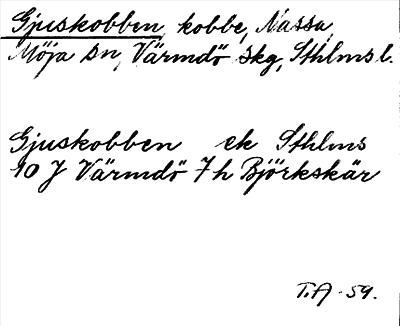 Gjuskobben, kobbe, Nassa,
Möja sn, Värmdö skg, Sthlms l.
Gjuskobben ek Sthlms
10 J Värmdö 7 h Björkskär
T.A -59.